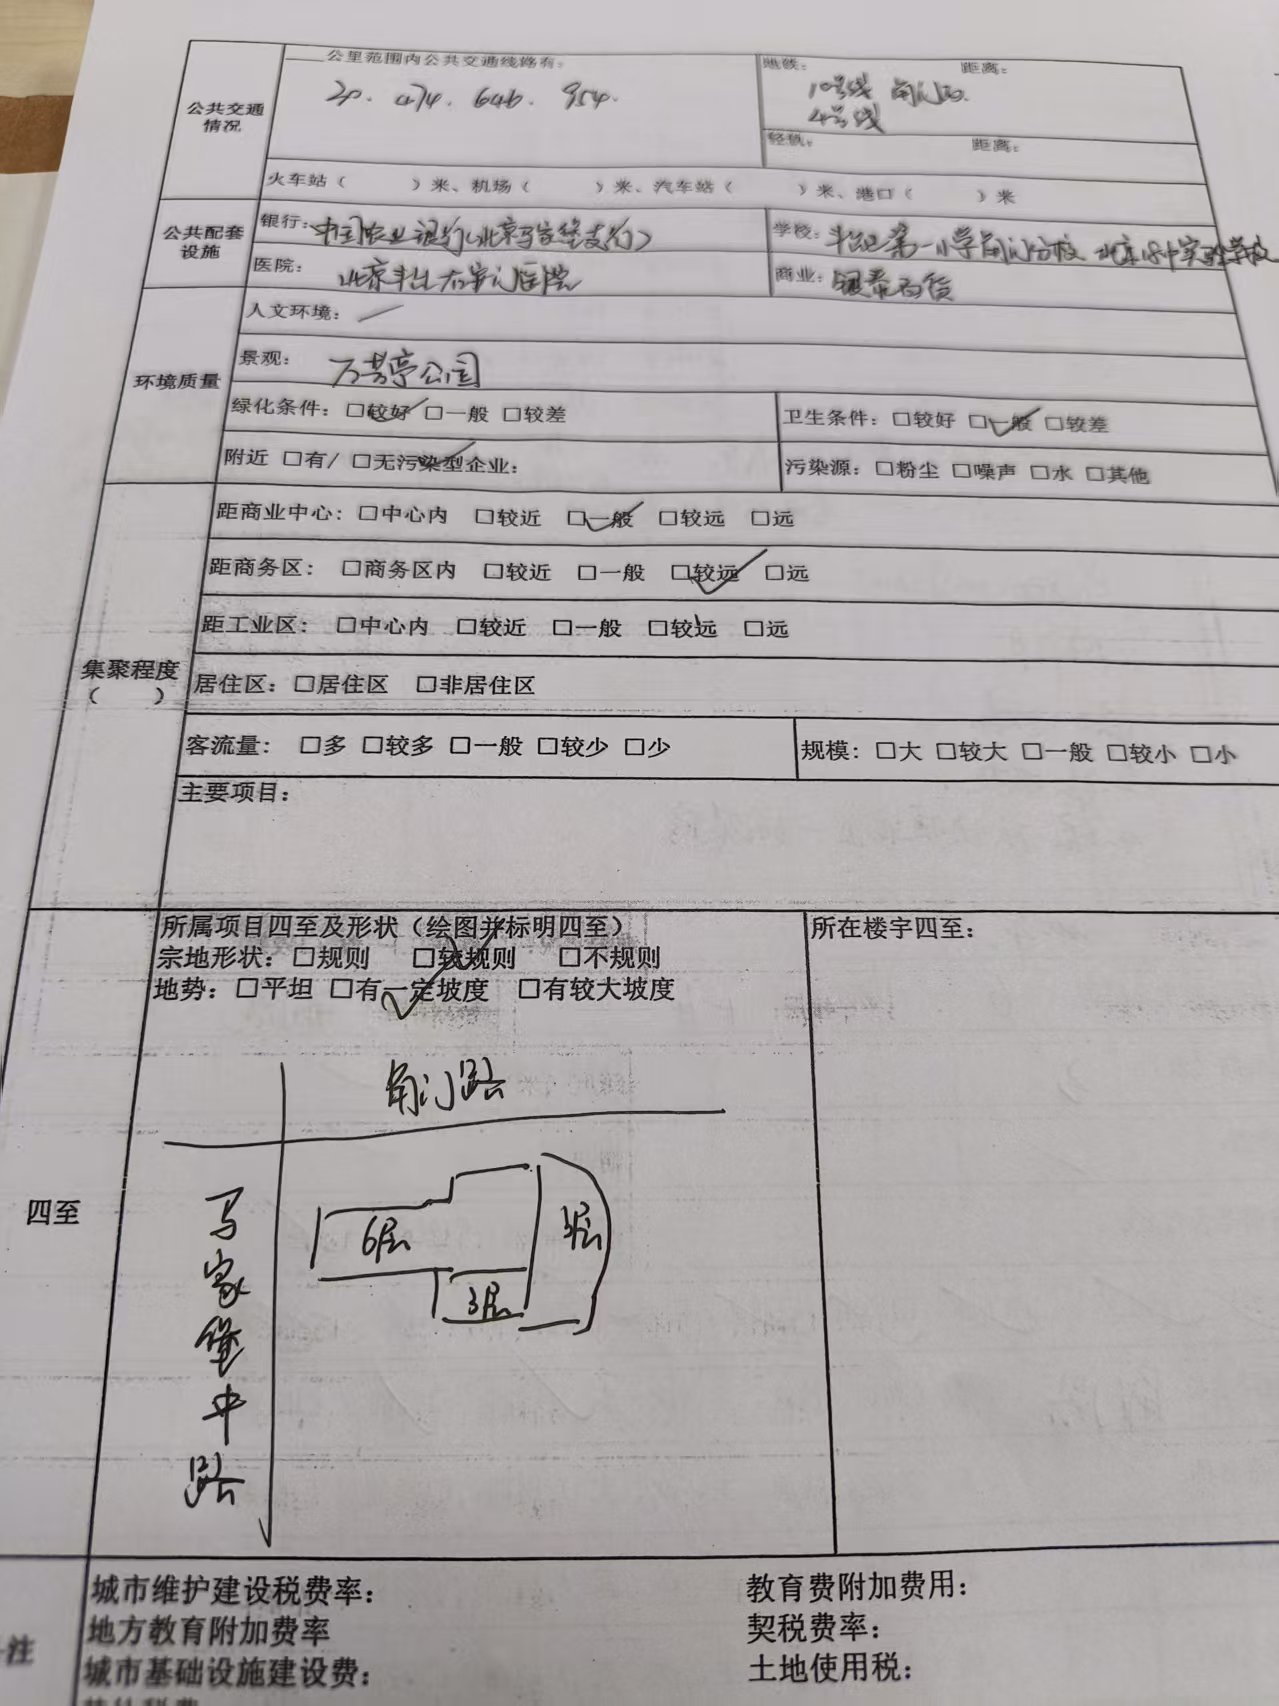 公共交通情况
____公里范围内公共交通线路有：
20. 474. 646. 954.
地铁： 距离：
10号线 角门西.
4号线
轻轨： 距离：
火车站（ ）米、机场（ ）米、汽车站（ ）米、港口（ ）米
公共配套设施
银行：中国农业银行（北京马家堡支行）
学校：丰台区第一小学角门分校 北京18中实验学校
医院：北京丰台右安门医院
商业：银泰百货
环境质量
人文环境：
景观：万芳亭公园
绿化条件：□较好 □一般 □较差
卫生条件：□较好 □一般 □较差
附近 □有/ □无污染型企业：
污染源：□粉尘 □噪声 □水 □其他
集聚程度（ ）
距商业中心：□中心内 □较近 □一般 □较远 □远
距商务区：□商务区内 □较近 □一般 □较远 □远
距工业区：□中心内 □较近 □一般 □较远 □远
居住区：□居住区 □非居住区
客流量：□多 □较多 □一般 □较少 □少
规模：□大 □较大 □一般 □较小 □小
主要项目：
四至
所属项目四至及形状（绘图并标明四至）
宗地形状：□规则 □较规则 □不规则
地势：□平坦 □有一定坡度 □有较大坡度
所在楼宇四至：
角门路
马家堡中路
6层
3层
城市维护建设税费率： 教育费附加费用：
注
地方教育附加费率 契税费率：
城市基础设施建设费： 土地使用税：